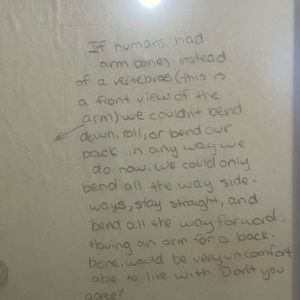 If humans had
arm bones instead
of a vertebrae (this is
a front view of the
arm) we couldnt bend
down, roll, or bend our
back in any way we
do now. we could only
bend all the way side-
ways, stay straight, and
bend all the way forward.
Having an arm for a back-
bone, would be very uncomfort
able to live with. Don't you
agree?